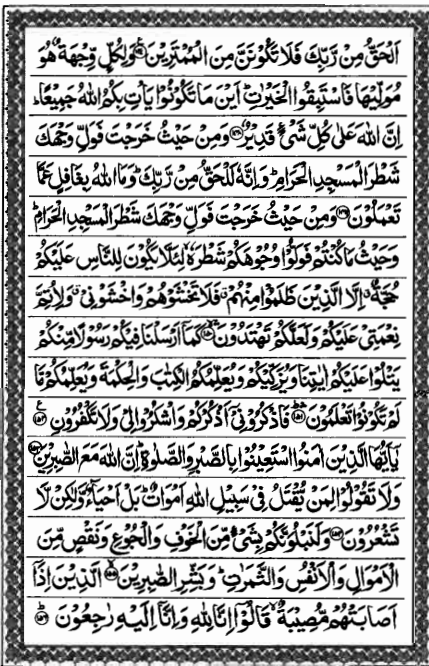 اَلْحَقُّ مِنْ رَّبِّكَ فَلَا تَكُوْنَنَّ مِنَ الْمُمْتَرِيْنَ ﴿۱۴۷﴾ وَلِكُلٍّ وِّجْهَةٌ هُوَ
مُوَلِّيْهَا فَاسْتَبِقُوا الْخَيْرٰتِ ؕ اَيْنَ مَا تَكُوْنُوْا يَاْتِ بِكُمُ اللّٰهُ جَمِيْعًا ؕ
اِنَّ اللّٰهَ عَلٰى كُلِّ شَىْءٍ قَدِيْرٌ ﴿۱۴۸﴾ وَمِنْ حَيْثُ خَرَجْتَ فَوَلِّ وَجْهَكَ
شَطْرَ الْمَسْجِدِ الْحَرَامِ ؕ وَاِنَّهٗ لَلْحَقُّ مِنْ رَّبِّكَ ؕ وَمَا اللّٰهُ بِغَافِلٍ عَمَّا
تَعْمَلُوْنَ ﴿۱۴۹﴾ وَمِنْ حَيْثُ خَرَجْتَ فَوَلِّ وَجْهَكَ شَطْرَ الْمَسْجِدِ الْحَرَامِ ؕ
وَحَيْثُ مَا كُنْتُمْ فَوَلُّوْا وُجُوْهَكُمْ شَطْرَهٗ ۙ لِئَلَّا يَكُوْنَ لِلنَّاسِ عَلَيْكُمْ
حُجَّةٌ ۙ اِلَّا الَّذِيْنَ ظَلَمُوْا مِنْهُمْ ۗ فَلَا تَخْشَوْهُمْ وَاخْشَوْنِىْ ۗ وَلِاُتِمَّ
نِعْمَتِىْ عَلَيْكُمْ وَلَعَلَّكُمْ تَهْتَدُوْنَ ﴿۱۵۰﴾ كَمَآ اَرْسَلْنَا فِيْكُمْ رَسُوْلًا مِّنْكُمْ
يَتْلُوْا عَلَيْكُمْ اٰيٰتِنَا وَيُزَكِّيْكُمْ وَيُعَلِّمُكُمُ الْكِتٰبَ وَالْحِكْمَةَ وَيُعَلِّمُكُمْ مَّا
لَمْ تَكُوْنُوْا تَعْلَمُوْنَ ﴿۱۵۱﴾ فَاذْكُرُوْنِىْٓ اَذْكُرْكُمْ وَاشْكُرُوْا لِىْ وَلَا تَكْفُرُوْنِ ﴿۱۵۲﴾ ع
يٰٓاَيُّهَا الَّذِيْنَ اٰمَنُوا اسْتَعِيْنُوْا بِالصَّبْرِ وَالصَّلٰوةِ ؕ اِنَّ اللّٰهَ مَعَ الصّٰبِرِيْنَ ﴿۱۵۳﴾
وَلَا تَقُوْلُوْا لِمَنْ يُّقْتَلُ فِىْ سَبِيْلِ اللّٰهِ اَمْوَاتٌ ؕ بَلْ اَحْيَآءٌ وَّلٰكِنْ لَّا
تَشْعُرُوْنَ ﴿۱۵۴﴾ وَلَنَبْلُوَنَّكُمْ بِشَىْءٍ مِّنَ الْخَوْفِ وَالْجُوْعِ وَنَقْصٍ مِّنَ
الْاَمْوَالِ وَالْاَنْفُسِ وَالثَّمَرٰتِ ؕ وَبَشِّرِ الصّٰبِرِيْنَ ﴿۱۵۵﴾ الَّذِيْنَ اِذَآ
اَصَابَتْهُمْ مُّصِيْبَةٌ ۙ قَالُوْٓا اِنَّا لِلّٰهِ وَاِنَّآ اِلَيْهِ رٰجِعُوْنَ ﴿۱۵۶﴾ ؕ